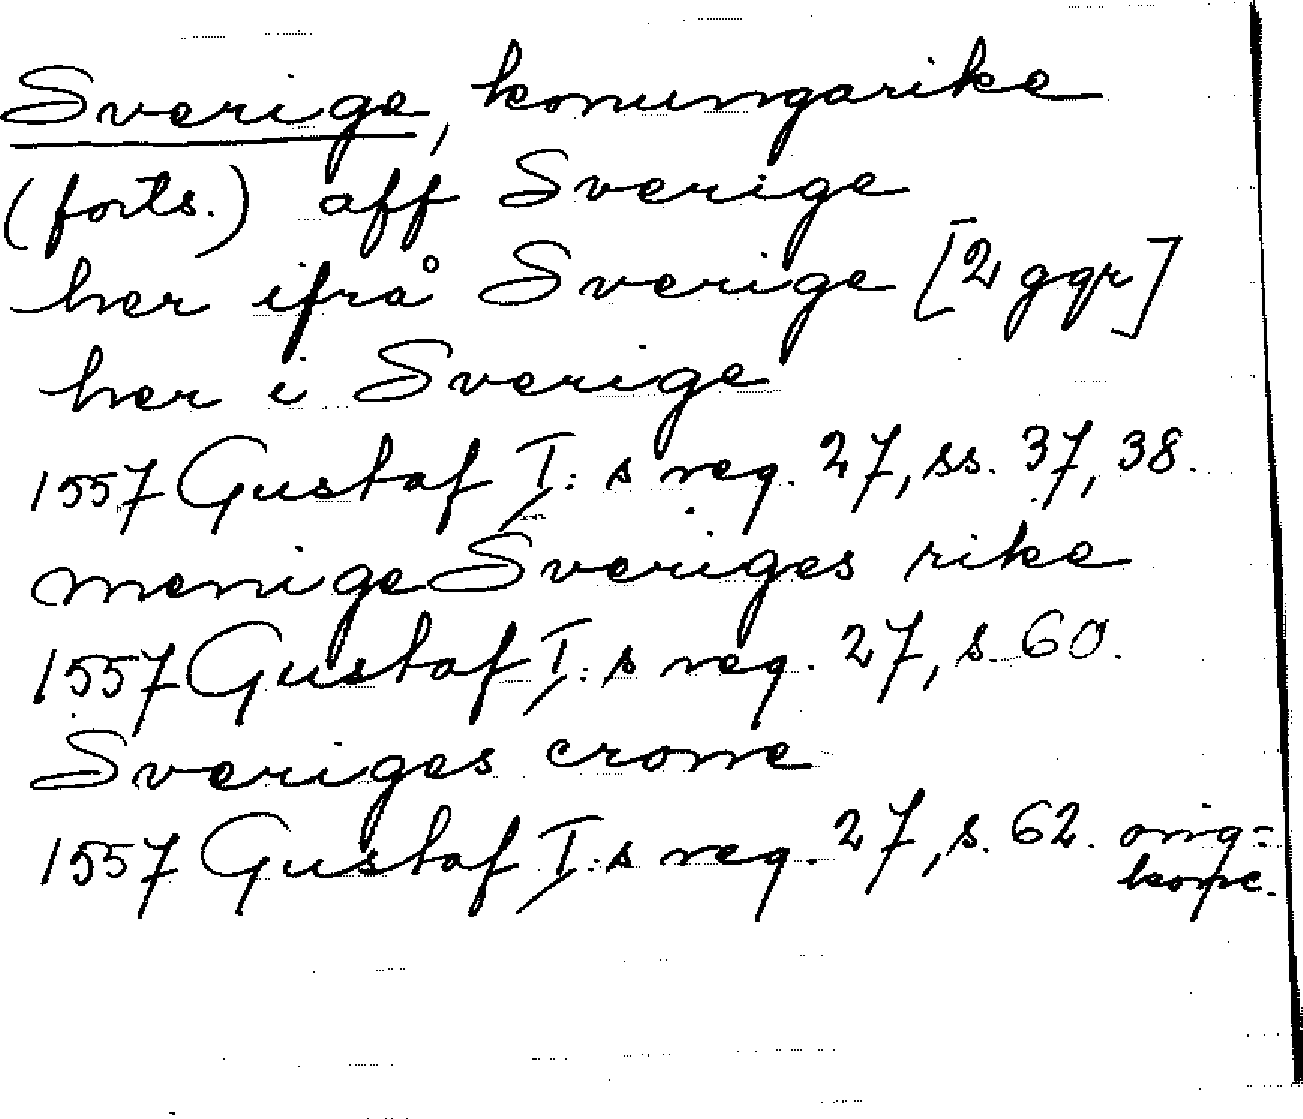 Sverige, konungarike
(forts.) aff Sverige
her ifrå Sverige [2 ggr]
her i Sverige
1557 Gustaf I:s reg. 27, ss. 37, 38.
menige Sveriges rike
1557 Gustaf I:s reg. 27, s. 60.
Sveriges crone
1557 Gustaf I:s reg. 27, s. 62. orig=
konc.